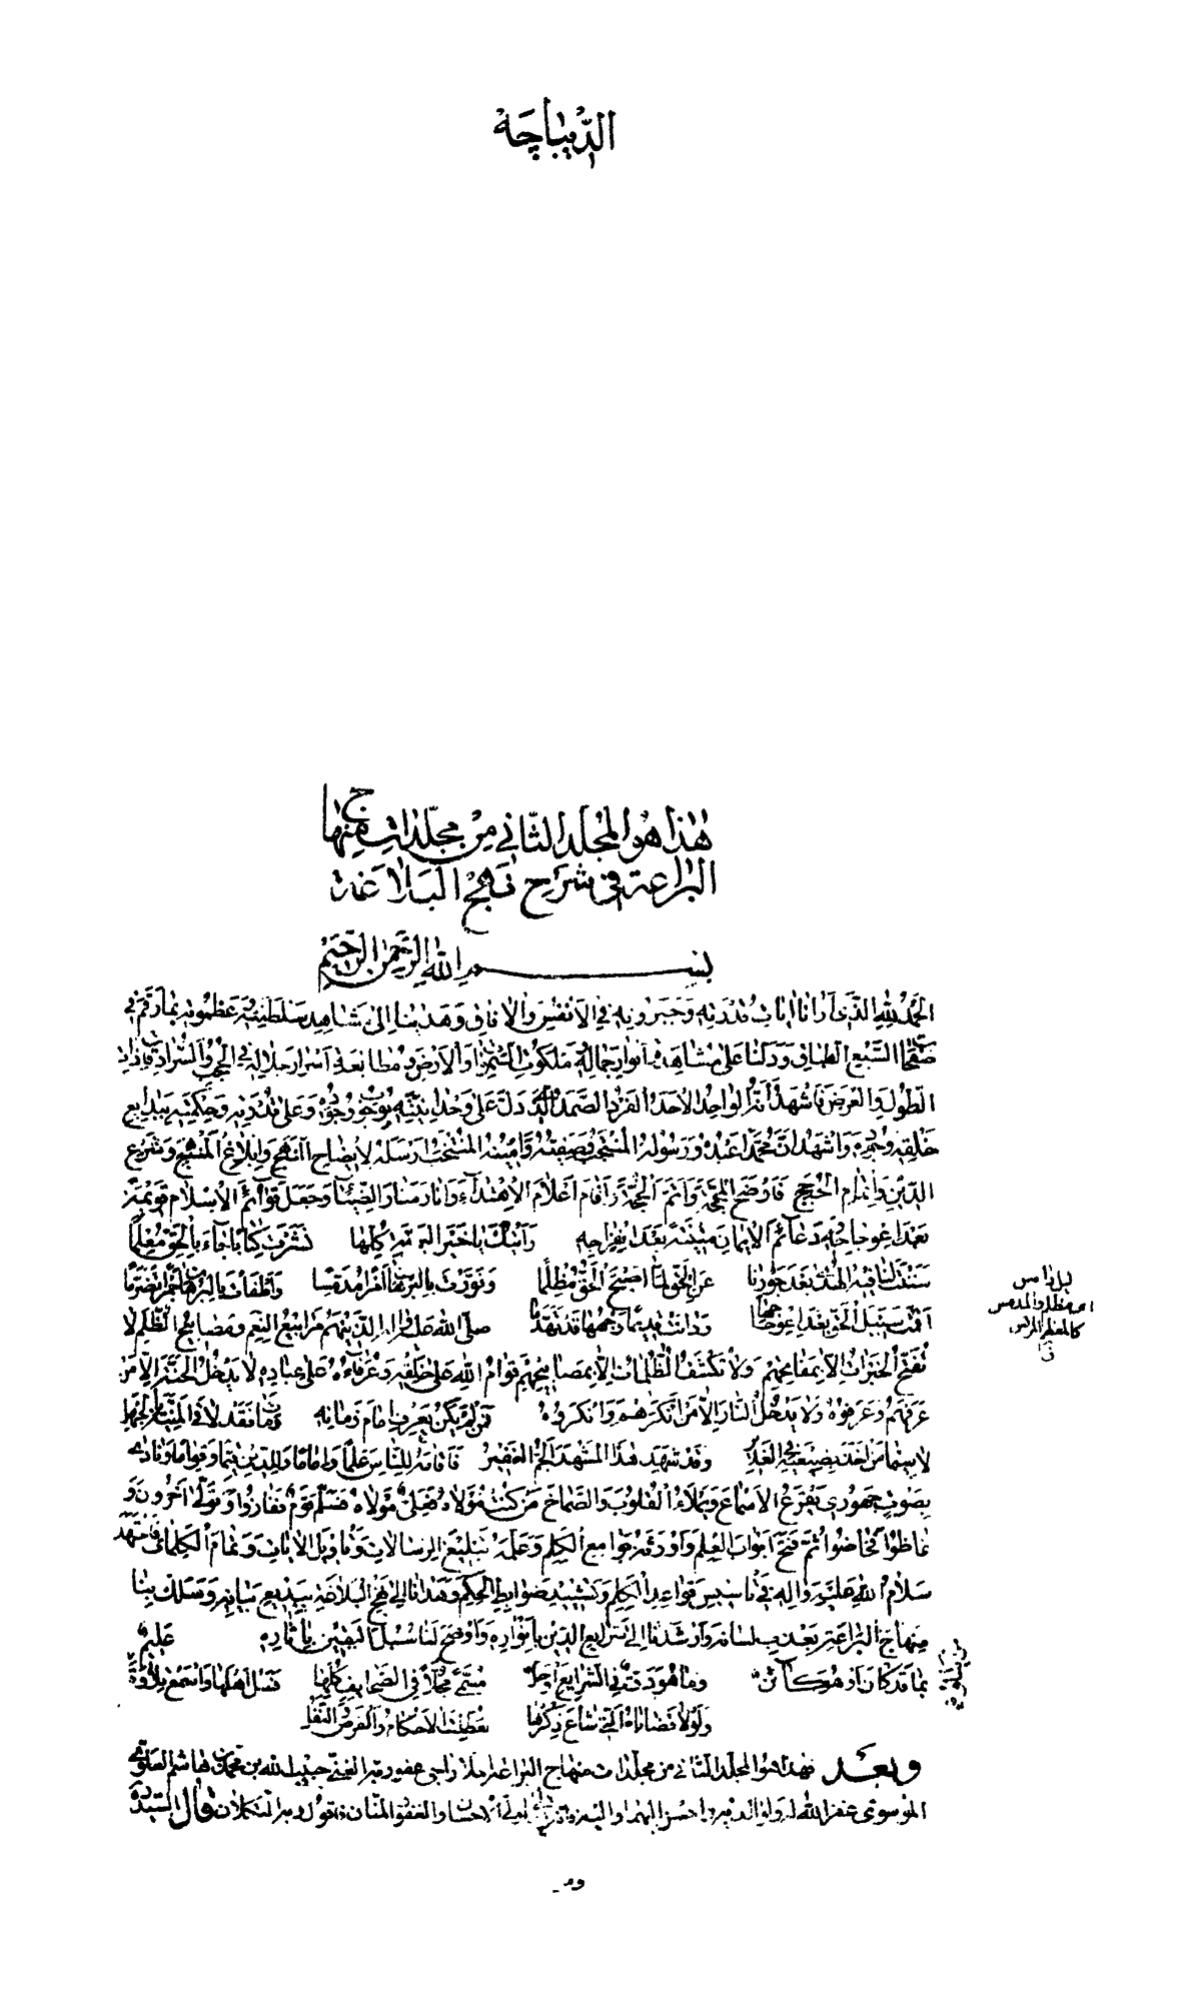 الدّيباچه
هذا هو المجلد الثاني من مجلدات منهاج
البراعة في شرح نهج البلاغة
بسم الله الرحمن الرحيم
الحمد لله الذي أرانا آيات قدرته وجبروته في الأنفس والآفاق وهدينا إلى مشاهد سلطنته وعظموته بما رقم في
صفحات السبع الطباق ودلنا على مشاهدة أنوار جماله ملكوت السموات والأرض ومطالعة أسرار جلاله في الحجب والسرادقات ذات
الطول والعرض فأشهد أنه الواحد الأحد الفرد الصمد الذي دل على وحدانيته بوجوب وجوده وعلى قدرته وحكمته ببدايع
خلقه وجوده وأشهد أن محمدا عبده ورسوله المنتجب وصفيه وأمينه المنتخب أرسله لإيضاح النهج وإبلاغ المنهج وتشريع
الدين وإتمام الحجج فأوضح المحجة وأتم الحجة وأقام أعلام الاهتداء وأنار منار الضياء وجعل قوائم الإسلام قويمة
بعد اعوجاجه ودعائم الإيمان متينة بعد انفراجه رأيتك يا خير البرية كلها نشرت كتابا جاء بالحق معلما
سننت لنا فيه الهدى بعد جورنا عن الحق لما أصبح الحق مظلما ونورت بالبرهان أمرا مدمسا وأطفأت بالبرهان جمرا مضرما
أقمت سبيل الحق بعد اعوجاجها ودانت قديما وجهها قد تهدما صلى الله عليه وآله الذين هم مرابيع النعم ومصابيح الظلم لا
تفتح الخيرات إلا بمفاتيحهم ولا تكشف الظلمات إلا بمصابيحهم قوام الله على خلقه وعرفاؤه على عباده لا يدخل الجنة إلا من
عرفهم وعرفوه ولا يدخل النار إلا من أنكرهم وأنكروه فمن لم يكن يعرف إمام زمانه ومات فقد لاقى المنية بالجهل
لا سيما من أخذت بيعته في الغدير وقد شهد هذا المشهد الجم الغفير فأقامه للناس علما وإماما وللدين قيما وقواما ونادى
بصوت جهوري يقرع الأسماع ويملأ القلوب والصماخ من كنت مولاه فعلي مولاه فسلم قوم ففازوا وتولى آخرون و
غاظوا فخاضوا ثم فتح أبواب العلم وأودعه جوامع الكلم وعلمه تبليغ الرسالات وتأويل الآيات وتمام الكلمات فاجتهد
سلام الله عليه وآله في تأسيس قواعد الكلم وتشييد ضوابط الحكم وهدانا إلى نهج البلاغة ببديع بيانه وسلك بنا
منهاج البراعة بعذب لسانه وأرشدنا إلى شرايع الدين بأنواره وأوضح لنا سبل اليقين بآثاره عليم
بما قد كان أو هو كائن وما هو دق في الشرايع أو جل مسمى مجلا في الصحايف كلها فسل أهلها واسمع تلاوة
ولولا قضاياه التي شاع ذكرها لعطلت الأحكام والفرض والنفل
وبعد فهذا هو المجلد الثاني من مجلدات منهاج البراعة إملاء راجي عفو ربه الغني حبيب الله بن محمد بن هاشم العلوي
الموسوي غفر الله له ولوالديه وأحسن إليهما وإليه إنه ولي الإحسان والغفور المنان فأقول وبه التكلان قال السيد ره